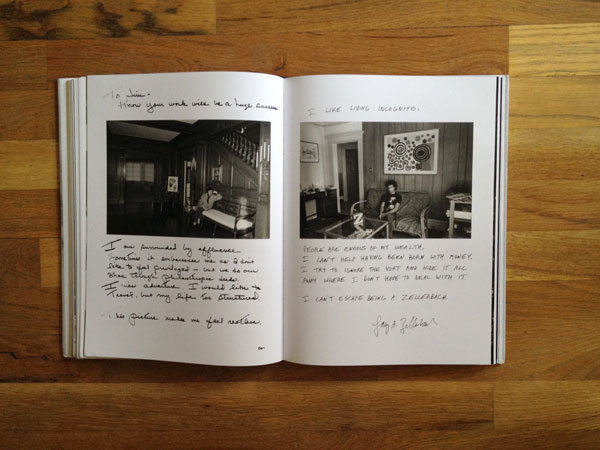 To Jim -
Know your work will be a huge success
I am surrounded by affluence
sometimes it embarrasses me as I don't
like to feel privileged - but we do our
share through philanthropic deeds.
I miss adventure. I would like to
travel, but my life too structured.
This picture makes me feel restless.
I LIKE LIVING INCOGNITO.
PEOPLE ARE ENVIOUS OF MY WEALTH.
I CAN'T HELP HAVING BEEN BORN WITH MONEY.
I TRY TO IGNORE THE HURT AND HIDE IT ALL
AWAY WHERE I DON'T HAVE TO DEAL WITH IT.
I CAN'T ESCAPE BEING A ZELLERBACH